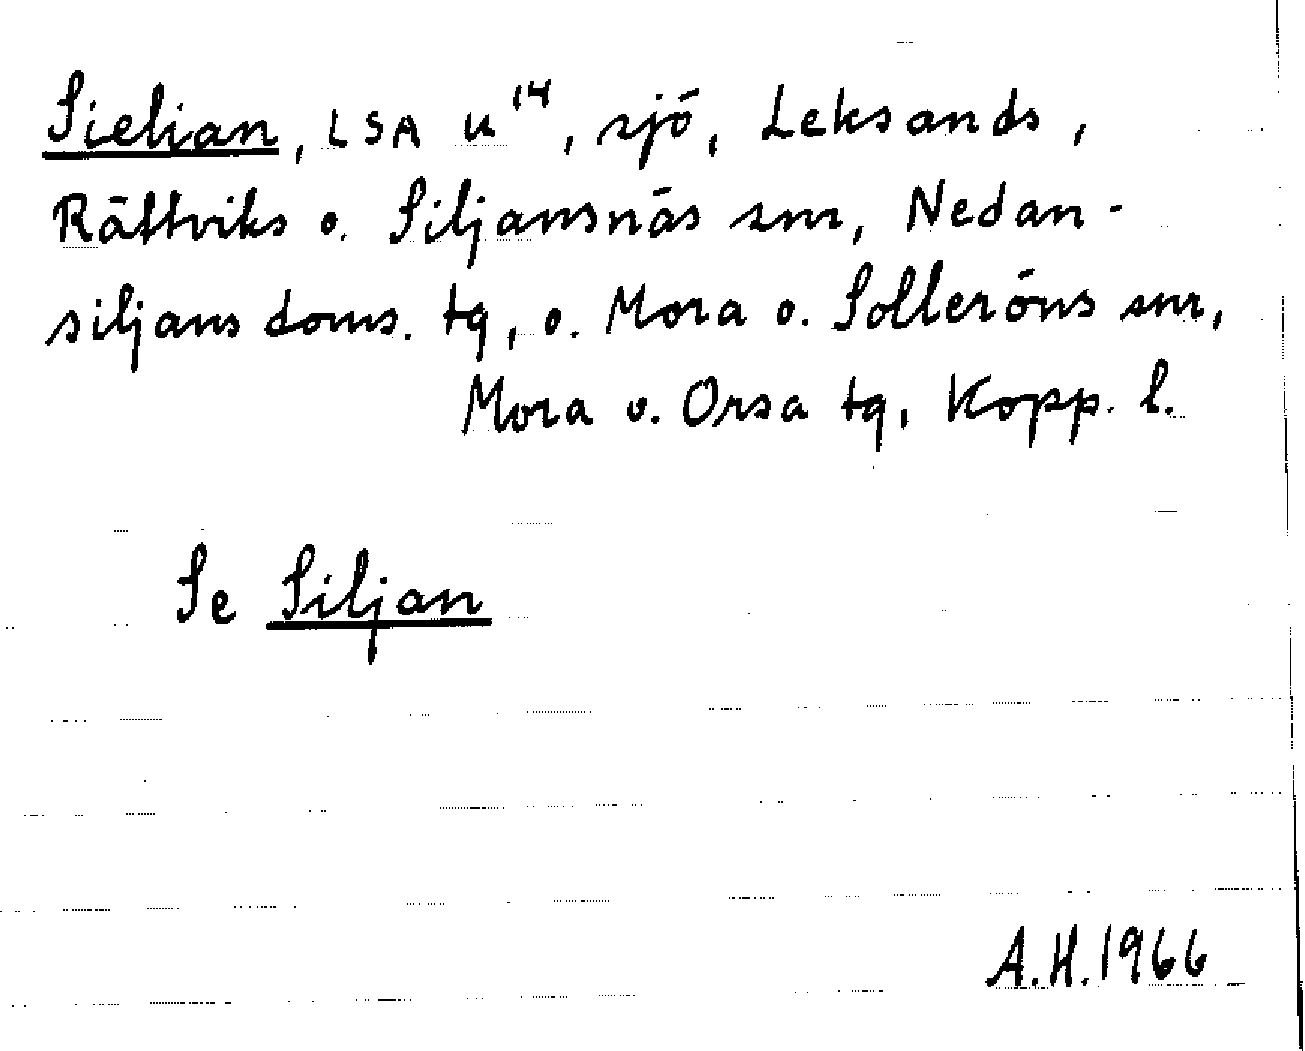 Sielian, LSA U¹⁴, sjö, Leksands,
Rättviks o. Siljansnäs snr, Nedan-
siljans doms. tg, o. Mora o. Solleröns snr,
Mora o. Orsa tg, Kopp. l.
Se Siljan
A.H.1966